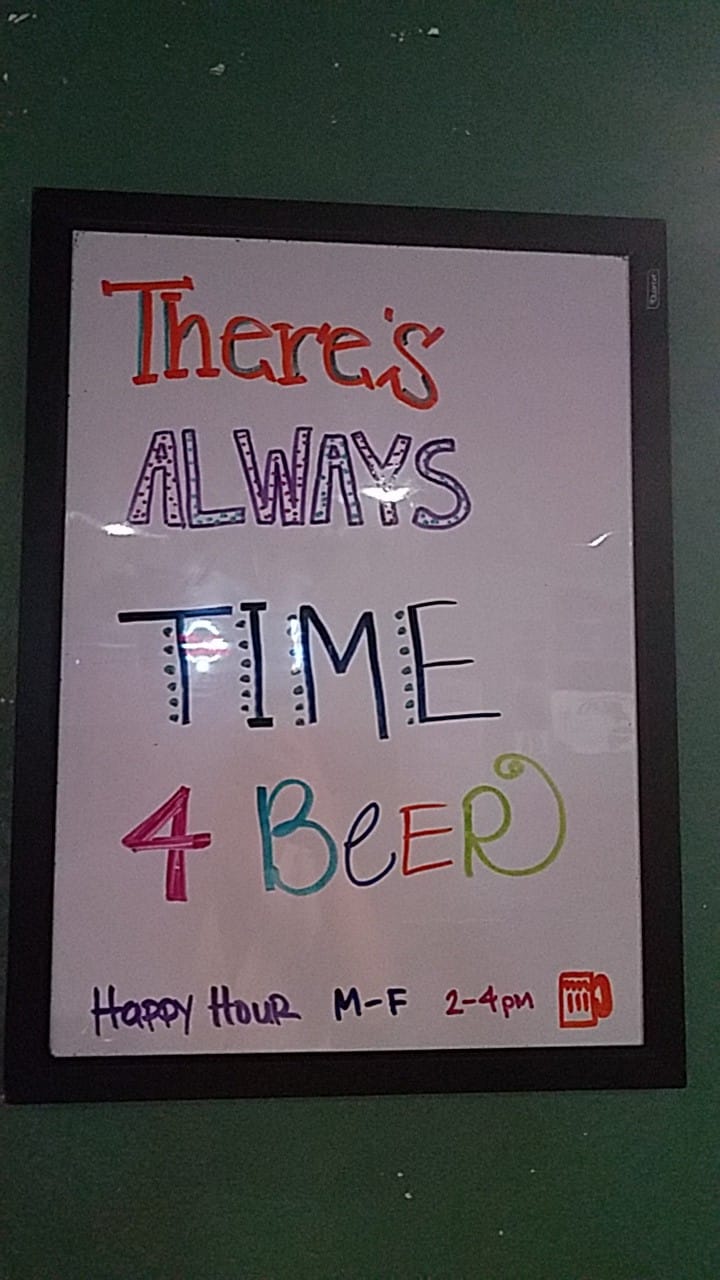 There's
ALWAYS
TIME
4 BeER
HAPPY HOUR M-F 2-4pm